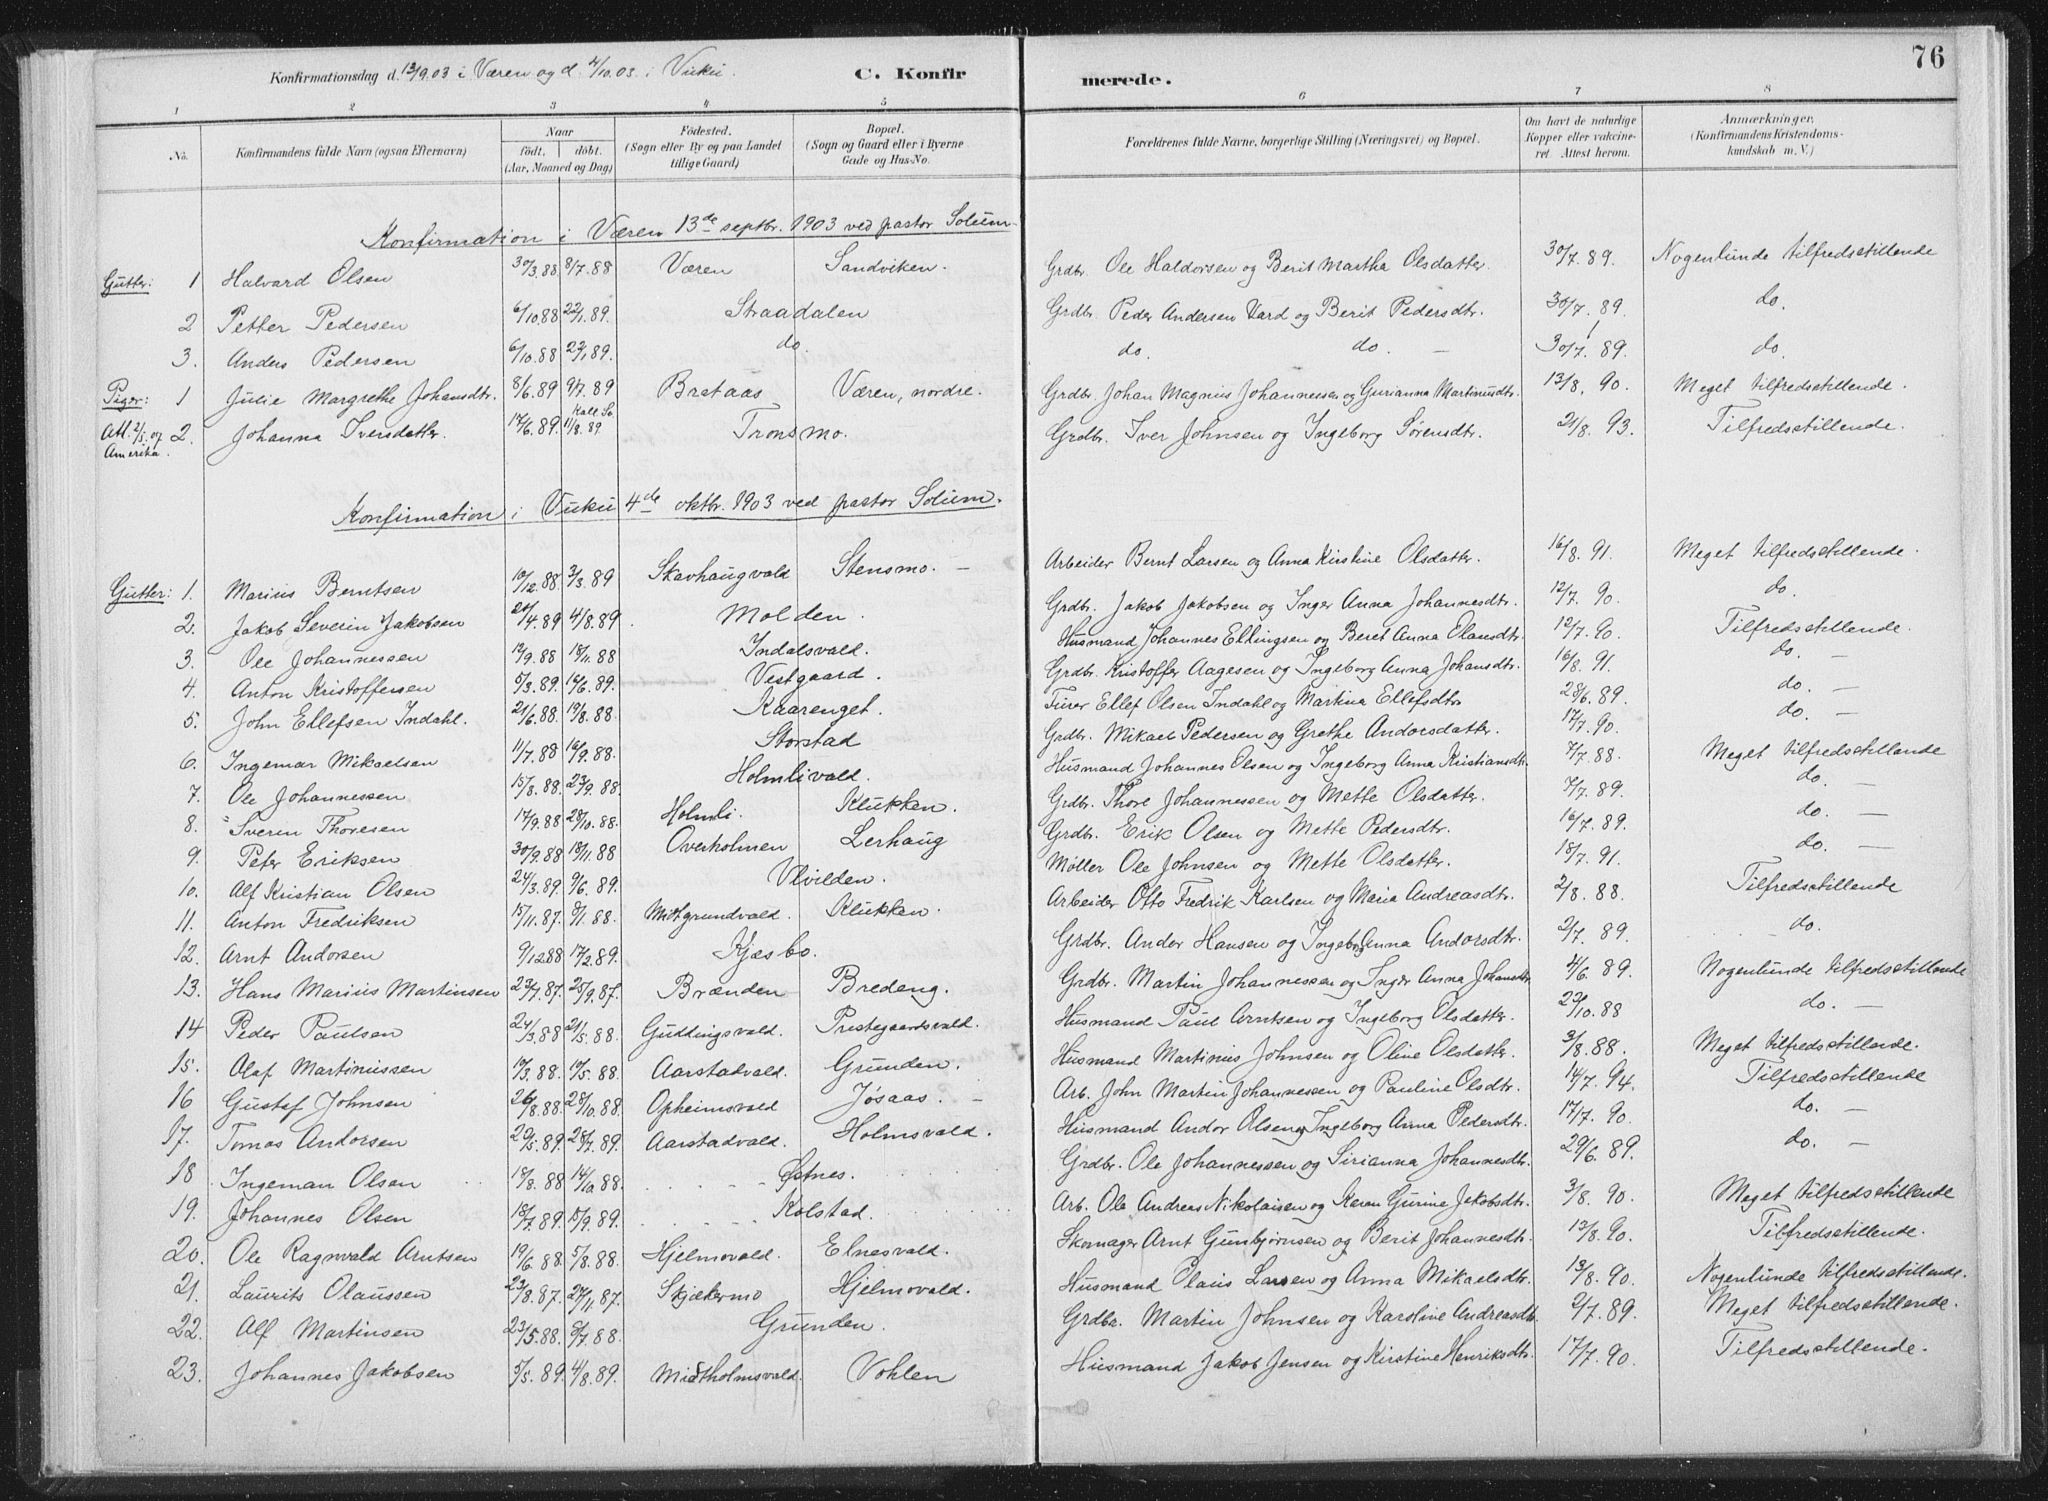 76
Konfirmationsdag d. 13/9.03 i Væren og d. 4/10.03. i Vuku. C. Konfirmerede.
1 2 3 4 5 6 7 8
No. Konfirmandens fulde Navn (ogsaa Efternavn) Naar födt. döbt. (Aar, Maaned og Dag) Födested. (Sogn eller By og paa Landet tillige Gaard) Bopæl. (Sogn og Gaard eller i Byerne Gade og Hus-No. Forældrenes fulde Navne, borgerlige Stilling (Næringsvei) og Bopæl. Om havt de naturlige Kopper eller vakcineret. Attest herom. Anmærkninger. (Konfirmandens Kristendomskundskab m. V.)
Konfirmation i Væren 13de septbr. 1903 ved pastor Solum
Gutter: 1 Halvard Olsen 30/3.88 8/7.88 Væren Sandviken. Grdbr. Ole Haldorsen og Berit Martha Olsdatter. 30/7.89. Nogenlunde tilfredsstillende
2 Petter Pedersen 6/10.88 22/1.89. Straadalen Grdbr. Peder Andersen Vard og Berit Pedersdtr. 30/7.89. do.
3. Anders Pedersen 6/10.88 22/1.89. do. do. do. — 30/7.89. do.
Piger: 1 Julie Margrethe Johansdtr. 8/6.89 9/7.89 Bretaas Væren, nordre. Grdbr. Johan Magnus Johannessen og Gurianna Martinusdtr. 13/8.90. Meget tilfredsstillende.
Att. 2/5.07 Amerika. 2. Johanna Iversdatter. 17/6.89. 11/8.89. Tronsmo. Grdbr. Iver Johnsen og Ingeborg Sørensdtr. 21/8.93. Tilfredsstillende.
Konfirmation i Vuku 4de oktbr. 1903 ved pastor Solum.
Gutter: 1. Marius Berntsen 10/12.88 3/3.89 Skavhaugvald Stensmo. — Arbeider Bernt Larsen og Anna Kirstine Olsdatter. 16/8.91. Meget tilfredsstillende.
2. Jakob Severin Jakobsen 24/4.89 4/8.89 Molden. Grdbr. Jakob Jakobsen og Inger Anna Johannesdtr. 12/7.90. do.
3. Ole Johannessen 12/9.88 18/11.88 Indalsvald. Husmand Johannes Ellingsen og Beret Anna Olausdtr. 12/7.90. Tilfredsstillende.
4. Anton Kristoffersen 5/3.89. 14/6.89. Vestgaard. Grdbr. Kristoffer Aagesen og Ingeborg Anna Johansdtr. 16/8.91. do. —
5. John Ellefsen Indahl. 21/6.88. 19/8.88. Kaarenget. Furer Ellef Olsen Indahl og Martina Ellefsdtr. 28/6.89. do. —
6. Ingemar Mikaelsen 11/7.88 16/9.88. Storstad Grdbr. Mikael Pedersen og Grethe Andorsdatter. 17/7.90. do. —
7. Ole Johannessen 15/8.88. 23/9.88. Holmlivald. Husmand Johannes Olsen og Ingeborg Anna Kristiansdtr. 7/7.88. Meget tilfredsstillende
8. Sveren Thoresen 17/9.88 28/10.88. Holmli. Klukken. Grdbr. Thore Johannessen og Mette Olsdatter. 7/7.89. do. —
9. Peter Eriksen 30/9.88 18/11.88 Overholmen Lerhaug Grdbr. Erik Olsen og Mette Pedersdtr. 16/7.89. do. —
10. Alf Kristian Olsen 24/3.89. 9/6.89. Ulvilden. Møller Ole Johnsen og Mette Olsdatter. 18/7.91. do. —
11. Anton Fredriksen 15/11.87. 8/1.88. Midtgrundvald. Klukken. Arbeider Otto Fredrik Karlsen og Maria Andreasdtr. 2/8.88. Tilfredsstillende
12. Arnt Andorsen 9/12.88 17/2.89. Kjæsbo. Grdbr. Andor Hansen og Ingeborg Anna Andorsdtr. 2/7.89. do.
13. Hans Marius Martinsen 23/7.87. 25/9.87. Brænden Bredeng. Grdbr. Martin Johannessen og Inger Anna Johansdtr 4/6.89. Nogenlunde tilfredsstillende
14 Peder Paulsen 24/3.88 21/5.88. Guddingsvald. Prestegaardsvald. Husmand Paul Arntsen og Ingeborg Olsdatter. 22/10.88 do. —
15. Olaf Martinussen 17/3.88. 19/5.88. Aarstadvald. Grunden. Husmand Martinus Johnsen og Oline Olsdatter. 3/8.88. Meget tilfredsstillende.
16 Gustaf Johnsen 26/8.88. 28/10.88. Opheimsvald Jøsaas. — Arb. John Martin Johannessen og Pauline Olsdtr. 14/7.94. Tilfredsstillende
17. Tomas Andorsen 29/5.89. 28/7.89. Aarstadvald. Holmsvald. Husmand Andor Olsen og Ingeborg Anna Pedersdtr. 17/7.90. do. —
18 Ingeman Olsen 18/8.88 14/10.88. Østnes. Grdbr. Ole Johannessen og Sirianna Johannesdtr. 29/6.89. do. —
19. Johannes Olsen 18/7.89. 15/9.89. Kolstad. Arb. Ole Andreas Nikolaisen og Karen Gurine Jakobsdtr. 3/8.90. Meget tilfredsstillende
20. Ole Ragnvald Arntsen 19/6.88. 5/8.88. Hjelmovald. Elnesvald. Skomager Arnt Gunbjørnsen og Berit Johannesdtr. 13/8.90. Tilfredsstillende.
21. Laurits Olaussen 23/8.87. 27/11.87. Skjækermo Hjelmovald. Husmand Olaus Larsen og Anna Mikaelsdtr. 13/8.90. Nogenlunde tilfredsstillende.
22. Alf Martinsen 23/5.88. 8/7.88. Grunden. Grdbr. Martin Johnsen og Karoline Andreasdtr. 2/7.89. Meget tilfredsstillende.
23. Johannes Jakobsen 5/5.89. 4/8.89. Midtholmsvald. Vohlen Husmand Jakob Jensen og Kirstine Henriksdtr. 17/7.90. Tilfredsstillende.